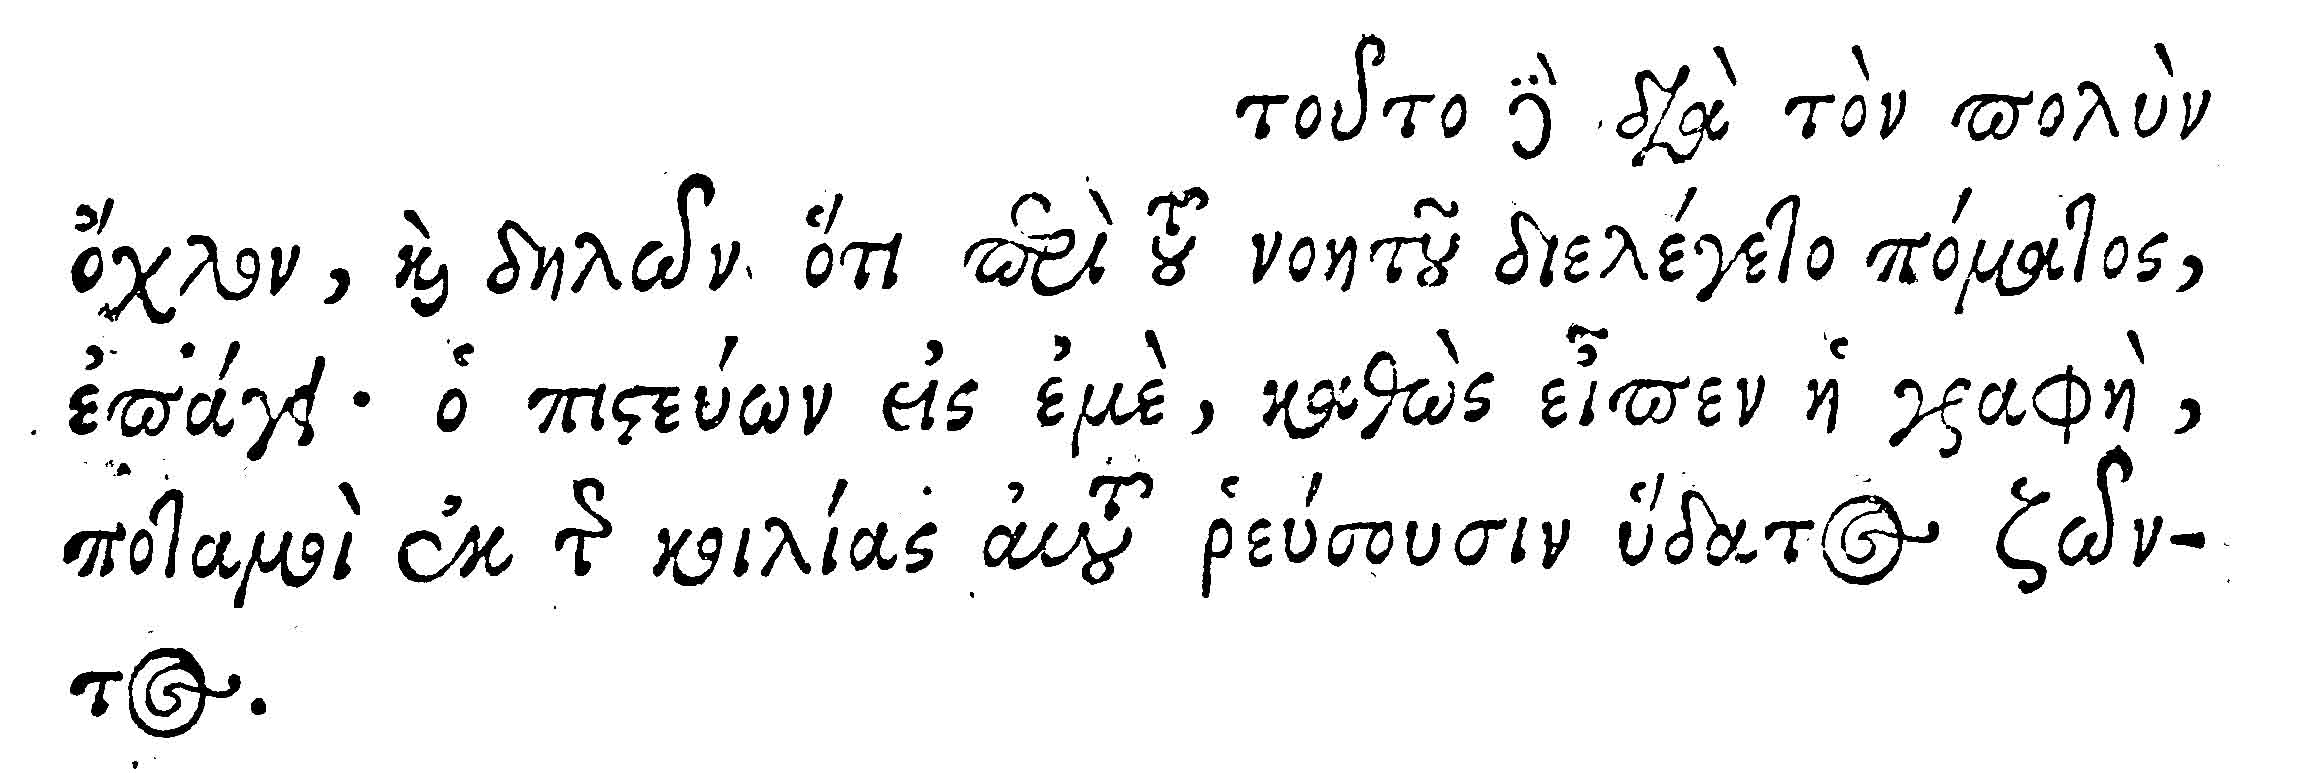 τοῦτο δὲ διὰ τὸν πολὺν
ὄχλον, καὶ δηλῶν ὅτι περὶ τοῦ νοητοῦ διελέγετο πόματος,
ἐπάγει· ὁ πιστεύων εἰς ἐμὲ, καθὼς εἶπεν ἡ γραφὴ,
ποταμοὶ ἐκ τῆς κοιλίας αὐτοῦ ῥεύσουσιν ὕδατος ζῶν-
τος.